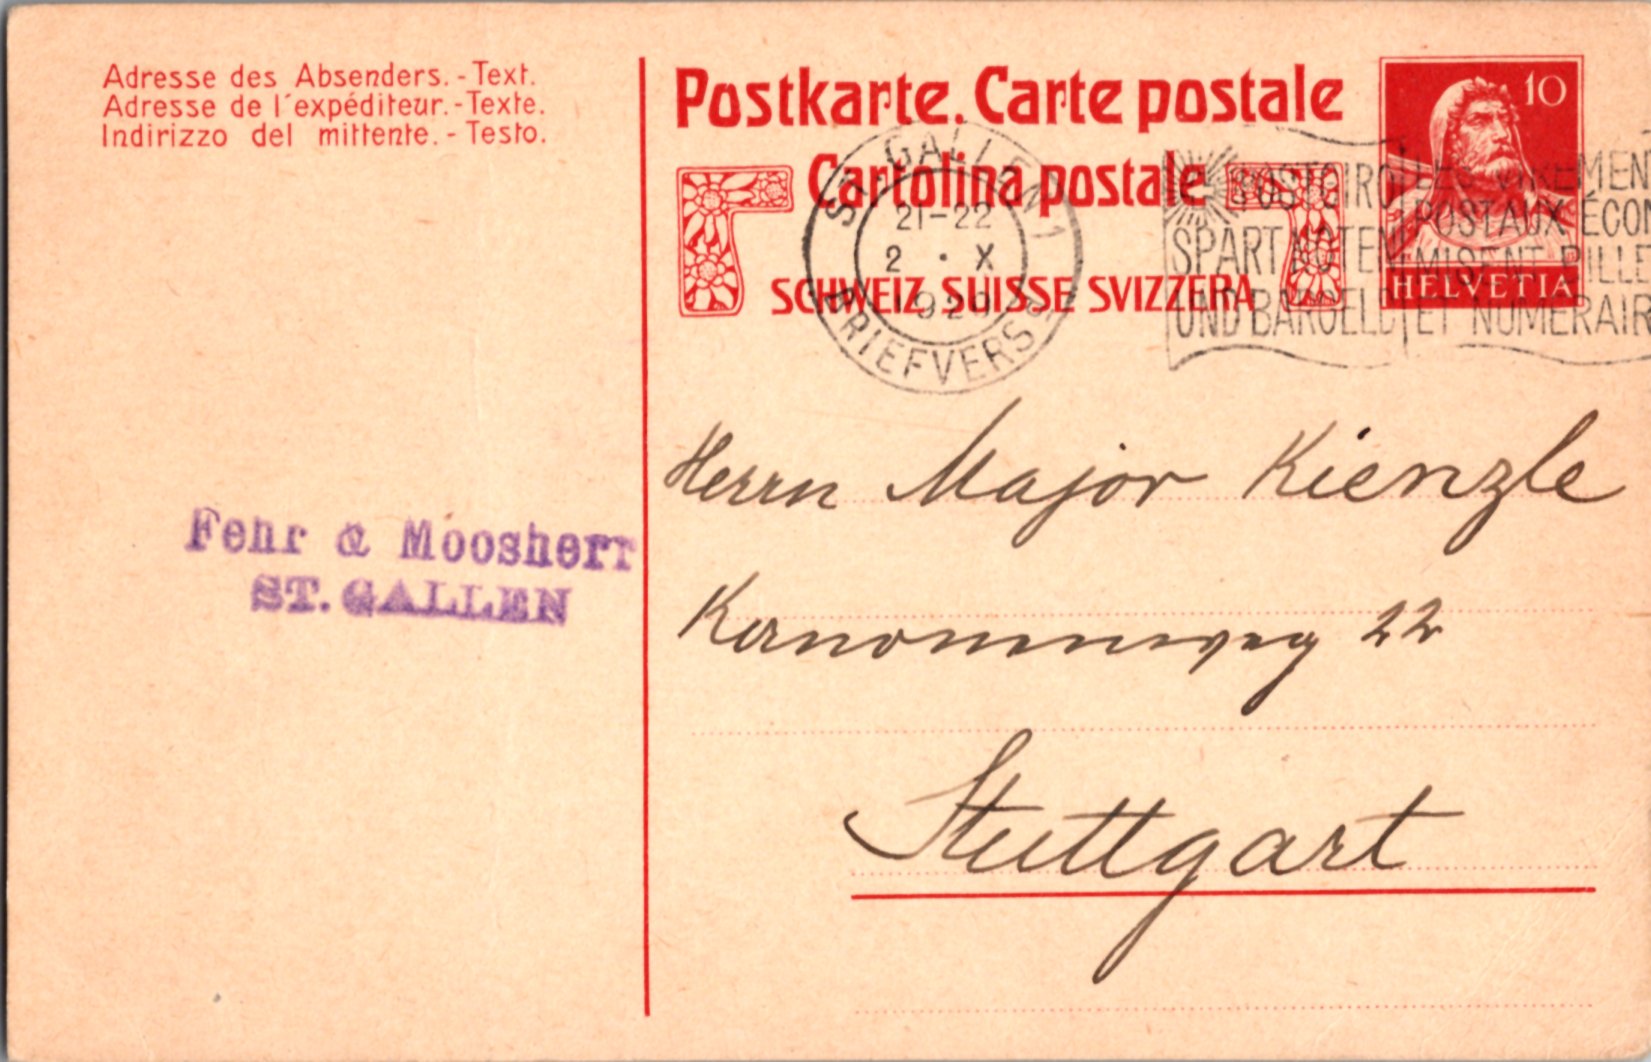 Adresse des Absenders. - Text.
Adresse de l'expéditeur. - Texte.
Indirizzo del mittente. - Testo.
Postkarte. Carte postale
Cartolina postale
SCHWEIZ SUISSE SVIZZERA
10
HELVETIA
ST. GALLEN 1
21-22
2 · X
1929
BRIEFVERS
POSTGIRO
SPART NOTEN
UND BARGELD
LES VIREMEN
POSTAUX ÉCON
MISENT BILLE
ET NUMÉRAIR
Fehr & Moosherr
ST. GALLEN
Herrn Major Kienzle
22
Stuttgart